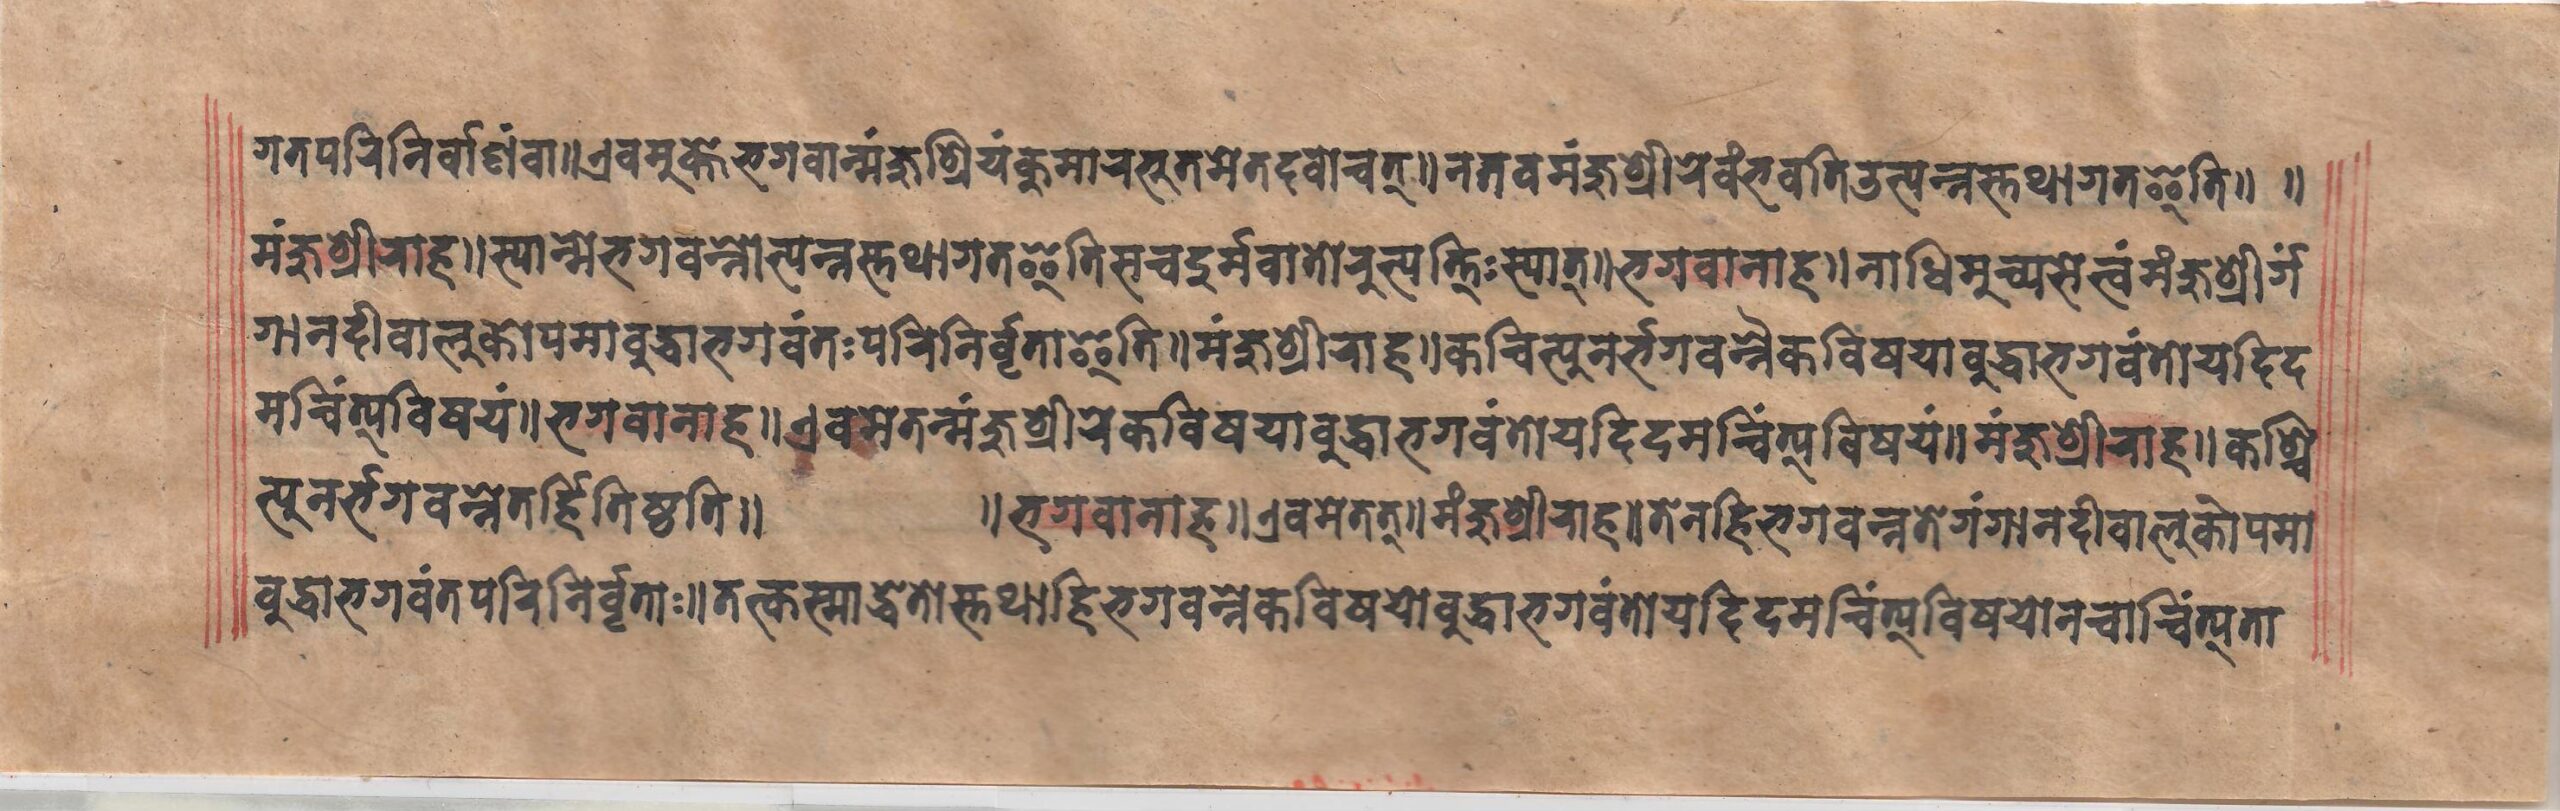 गतपरिनिर्वाणंवा॥एवमुक्तेभगवान्मंजुश्रियंकुमारभूतमेतदवोचत्॥नतवमंजुश्रीरेवंभवतिउत्पन्नस्तथागतइति॥ ॥
मंजुश्रीराह॥स्यान्मेभगवन्नोत्पन्नस्तथागतइतिसचदुर्मवातोरुत्पत्तिःस्यात्॥भगवानाह॥नाधिमुच्यसेत्वंमंजुश्रीर्गं
गानदीवालुकोपमाबुद्धाभगवंतःपरिनिर्वृताइति॥मंजुश्रीराह॥कच्चित्पुनर्भगवन्नैकविषयाबुद्धाभगवंतोयदिद
मचिंत्यविषयं॥भगवानाह॥एवमेतन्मंजुश्रीरेकविषयाबुद्धाभगवंतोयदिदमचिंत्यविषयं॥मंजुश्रीराह॥कश्चि
त्पुनर्भगवन्नेतर्हितिष्ठति॥ ॥भगवानाह॥एवमेतत्॥मंजुश्रीराह॥तेनहिभगवन्नतेगंगानदीवालुकोपमा
बुद्धाभगवंतपरिनिर्वृताः॥तत्कस्माद्धेतोस्तथाहिभगवन्नेकविषयोबुद्धाभगवंतोयदिदमचिंत्यविषयोनचाचिंत्यता